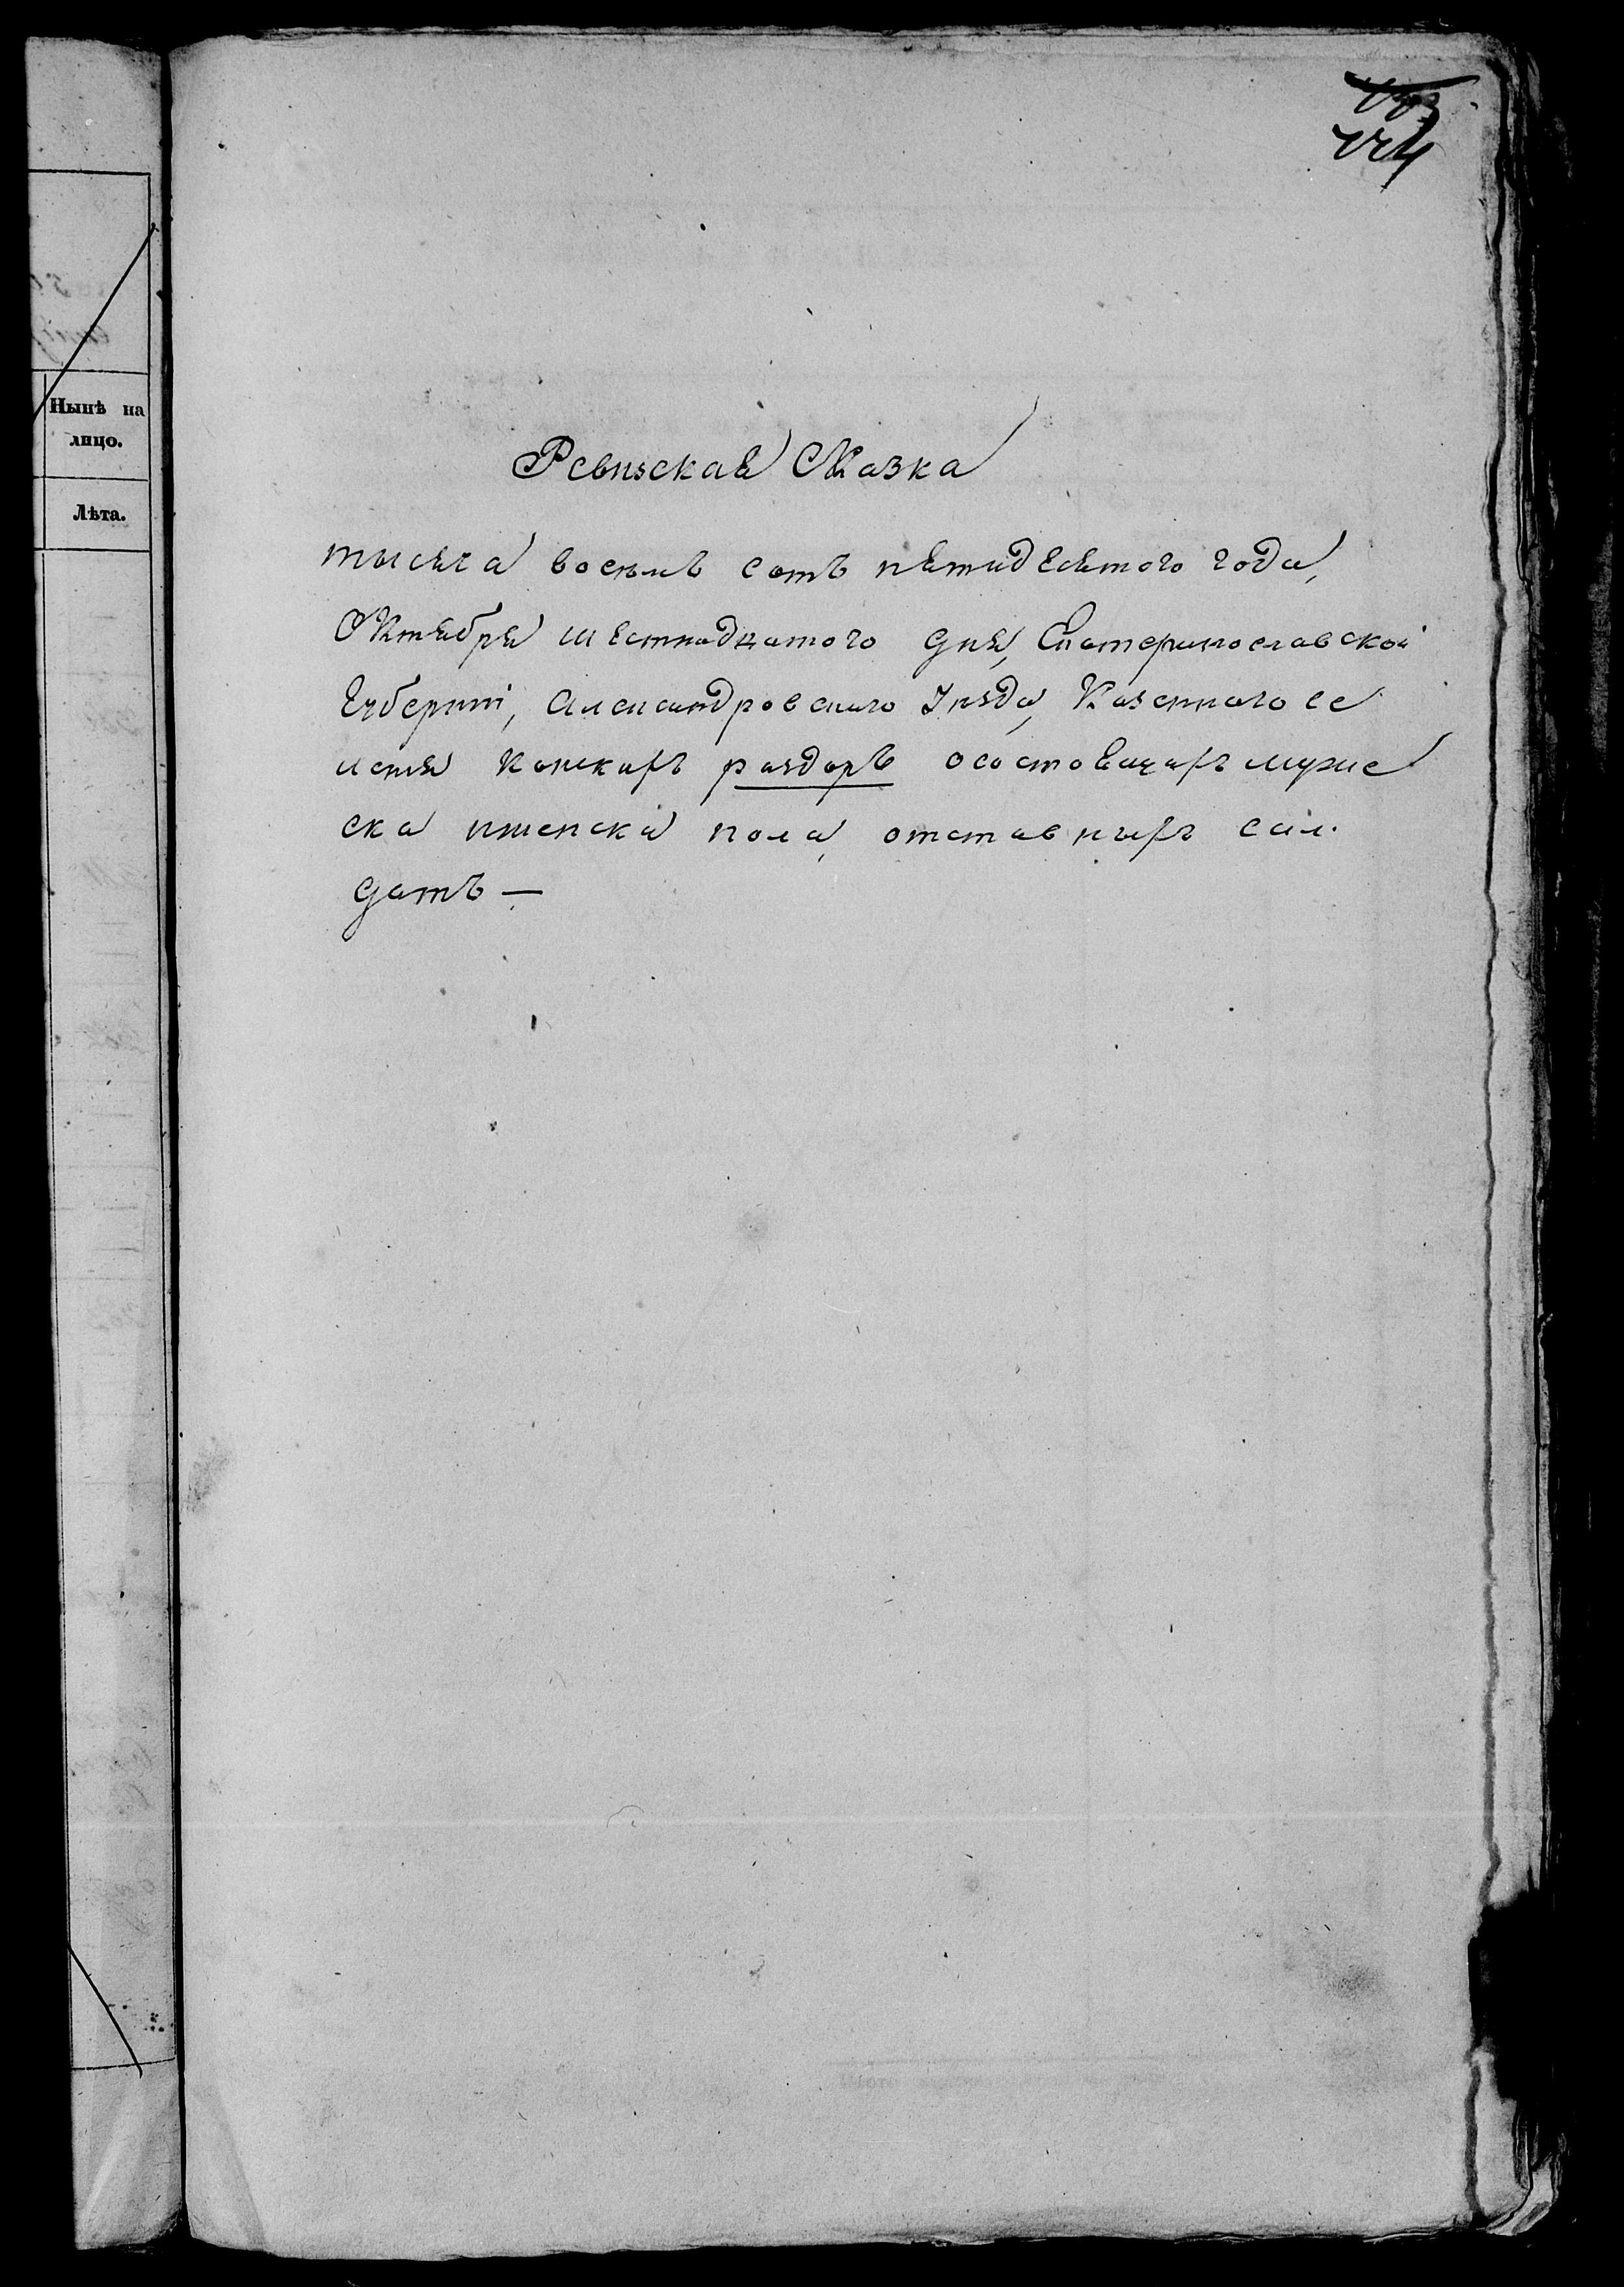 174
Нынѣ на
лицо.
Лѣта.
Ревизская Сказка
тысяча восемь сотъ пятидесятого года,
Октября шестнадцатого дня, Екатеринославской
Губерніи, Александровскаго Уѣзда, Казенного се
ленія Конскихъ раздоръ осостоящихъ мужес
ска иженска пола, отставныхъ сал
датъ —